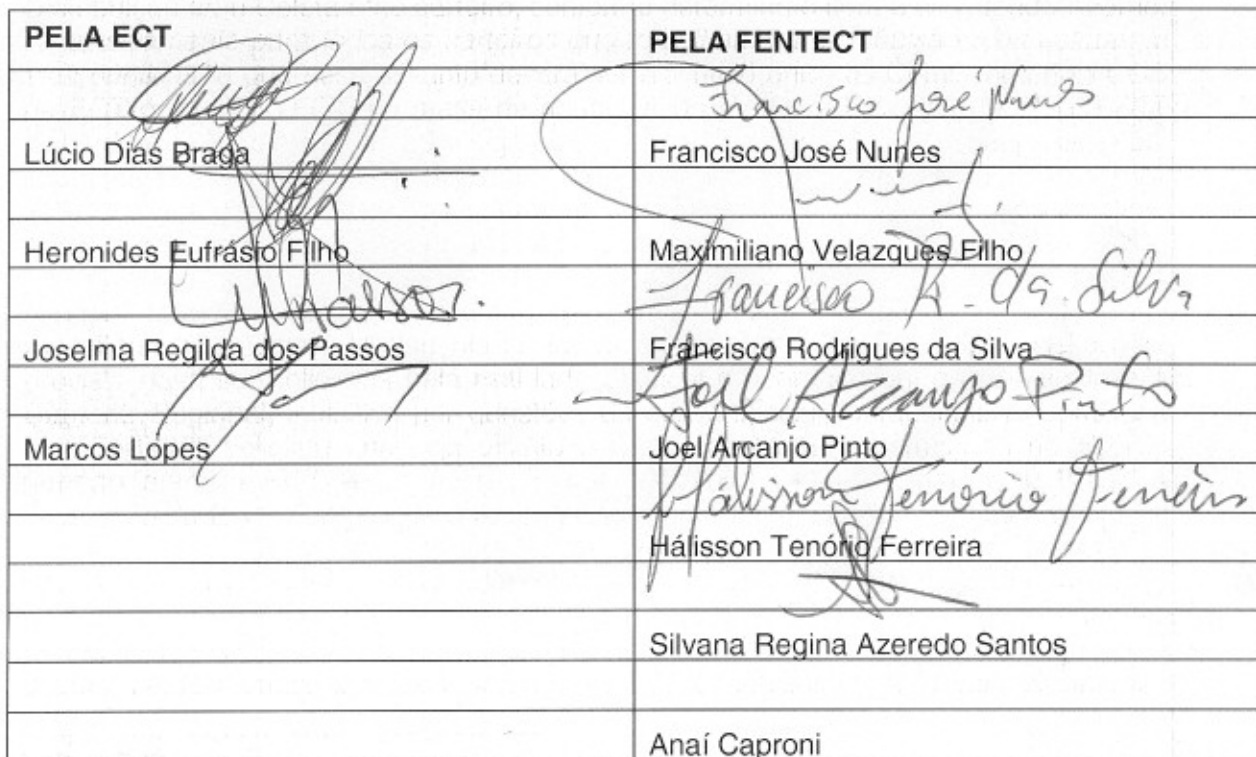 PELA ECT
PELA FENTECT
Francisco José Nunes
Lúcio Dias Braga
Francisco José Nunes
Heronides Eufrásio Filho
Maximiliano Velazques Filho
Francisco R. da Silva
Joselma Regilda dos Passos
Francisco Rodrigues da Silva
Joel Arcanjo Pinto
Marcos Lopes
Joel Arcanjo Pinto
Hálisson Tenório Ferreira
Hálisson Tenório Ferreira
Silvana Regina Azeredo Santos
Anaí Caproni